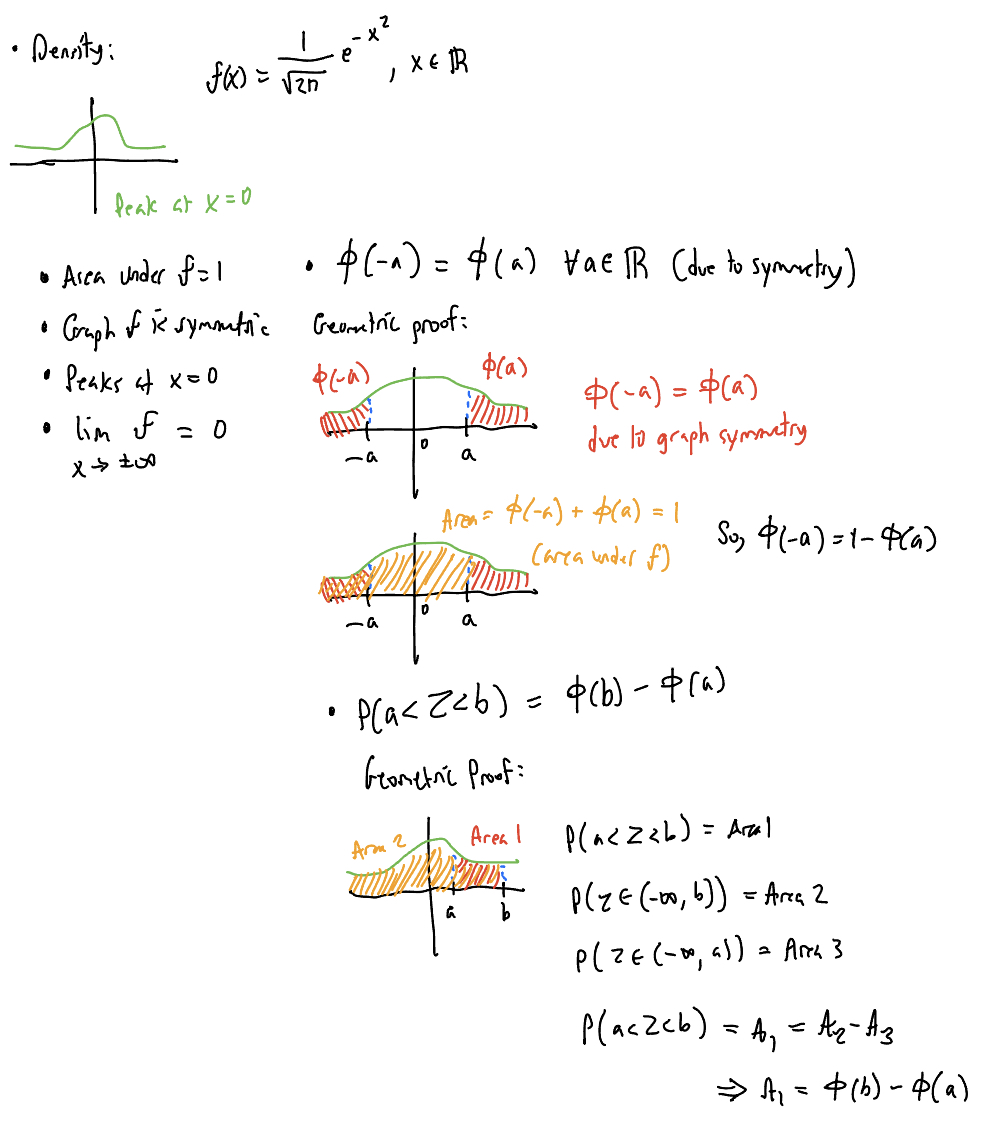 • Density: f(x) = 1/√2π e^-x², x ∈ ℝ
Peak at x = 0
• Area under f = 1
• Graph f is symmetric
• Peaks at x = 0
• lim f = 0
x → ±∞
• ϕ(-a) = ϕ(a) ∀a ∈ ℝ (due to symmetry)
Geometric proof:
ϕ(-a) ϕ(a)
-a 0 a
ϕ(-a) = ϕ(a)
due to graph symmetry
Area = ϕ(-a) + ϕ(a) = 1
(area under f)
-a 0 a
So, ϕ(-a) = 1 - ϕ(a)
• P(a < Z < b) = ϕ(b) - ϕ(a)
Geometric Proof:
Area 2 Area 1
a b
P(a < Z < b) = Area 1
P(Z ∈ (-∞, b)) = Area 2
P(Z ∈ (-∞, a)) = Area 3
P(a < Z < b) = A₁ = A₂ - A₃
⇒ A₁ = ϕ(b) - ϕ(a)